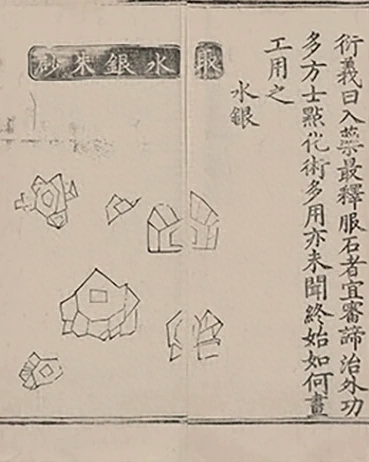 衍義曰入藥最釋服石者宜審諦治外功
多方士點化術多用亦未聞終始如何畫
工用之
水銀
取水銀朱砂